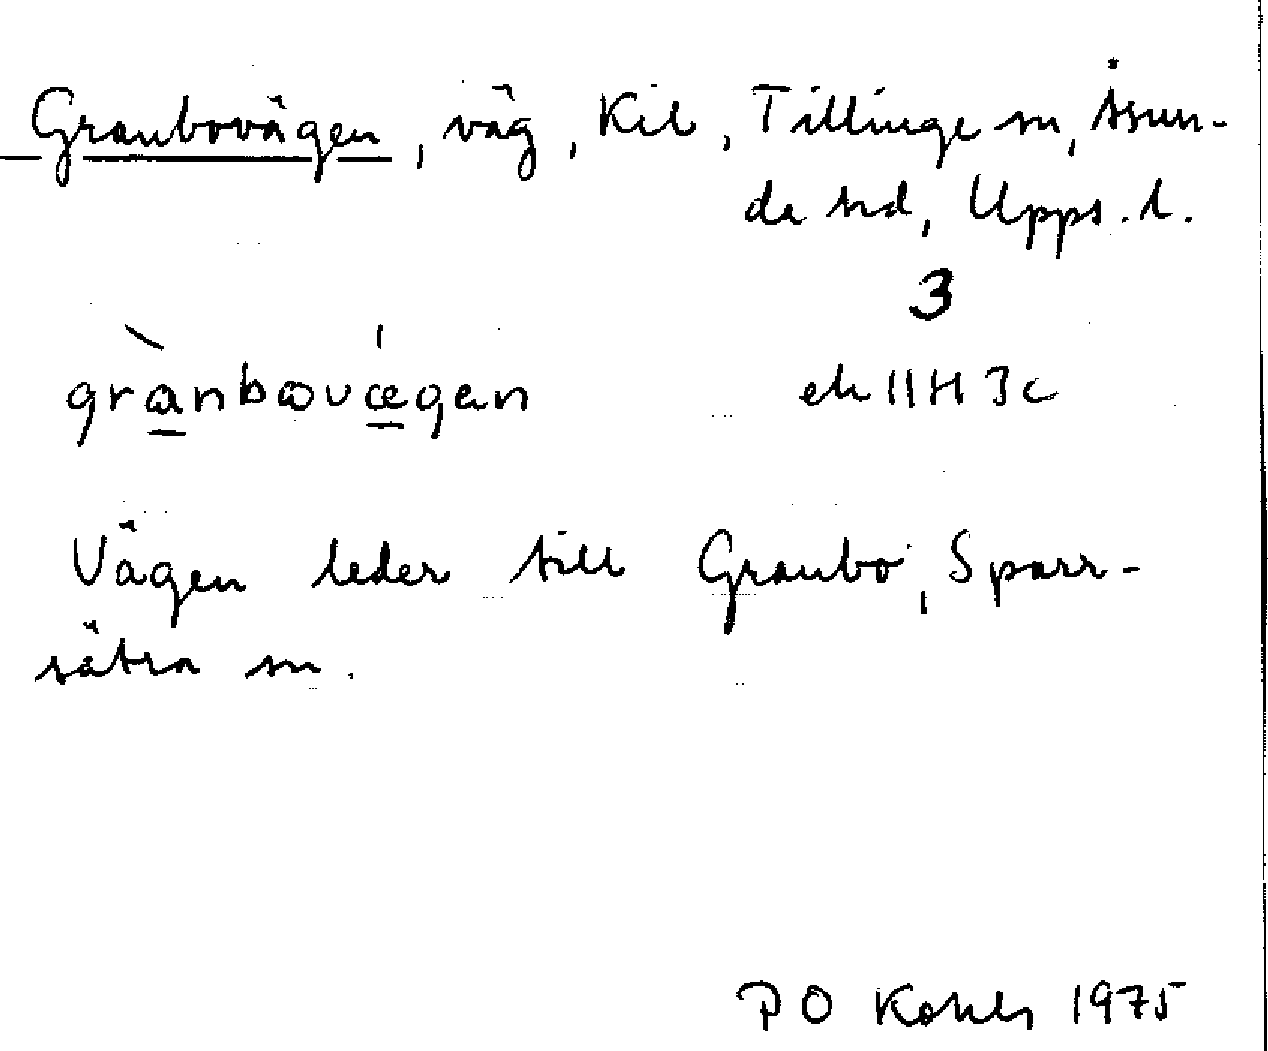 Granbovägen, väg, Kil, Tillinge sn, Åsun-
da hd, Upps. l.
3
grànbωvǽgan
ek 11H 3c
Vägen leder till Granbo, Sparr-
sätra sn.
P O 1975